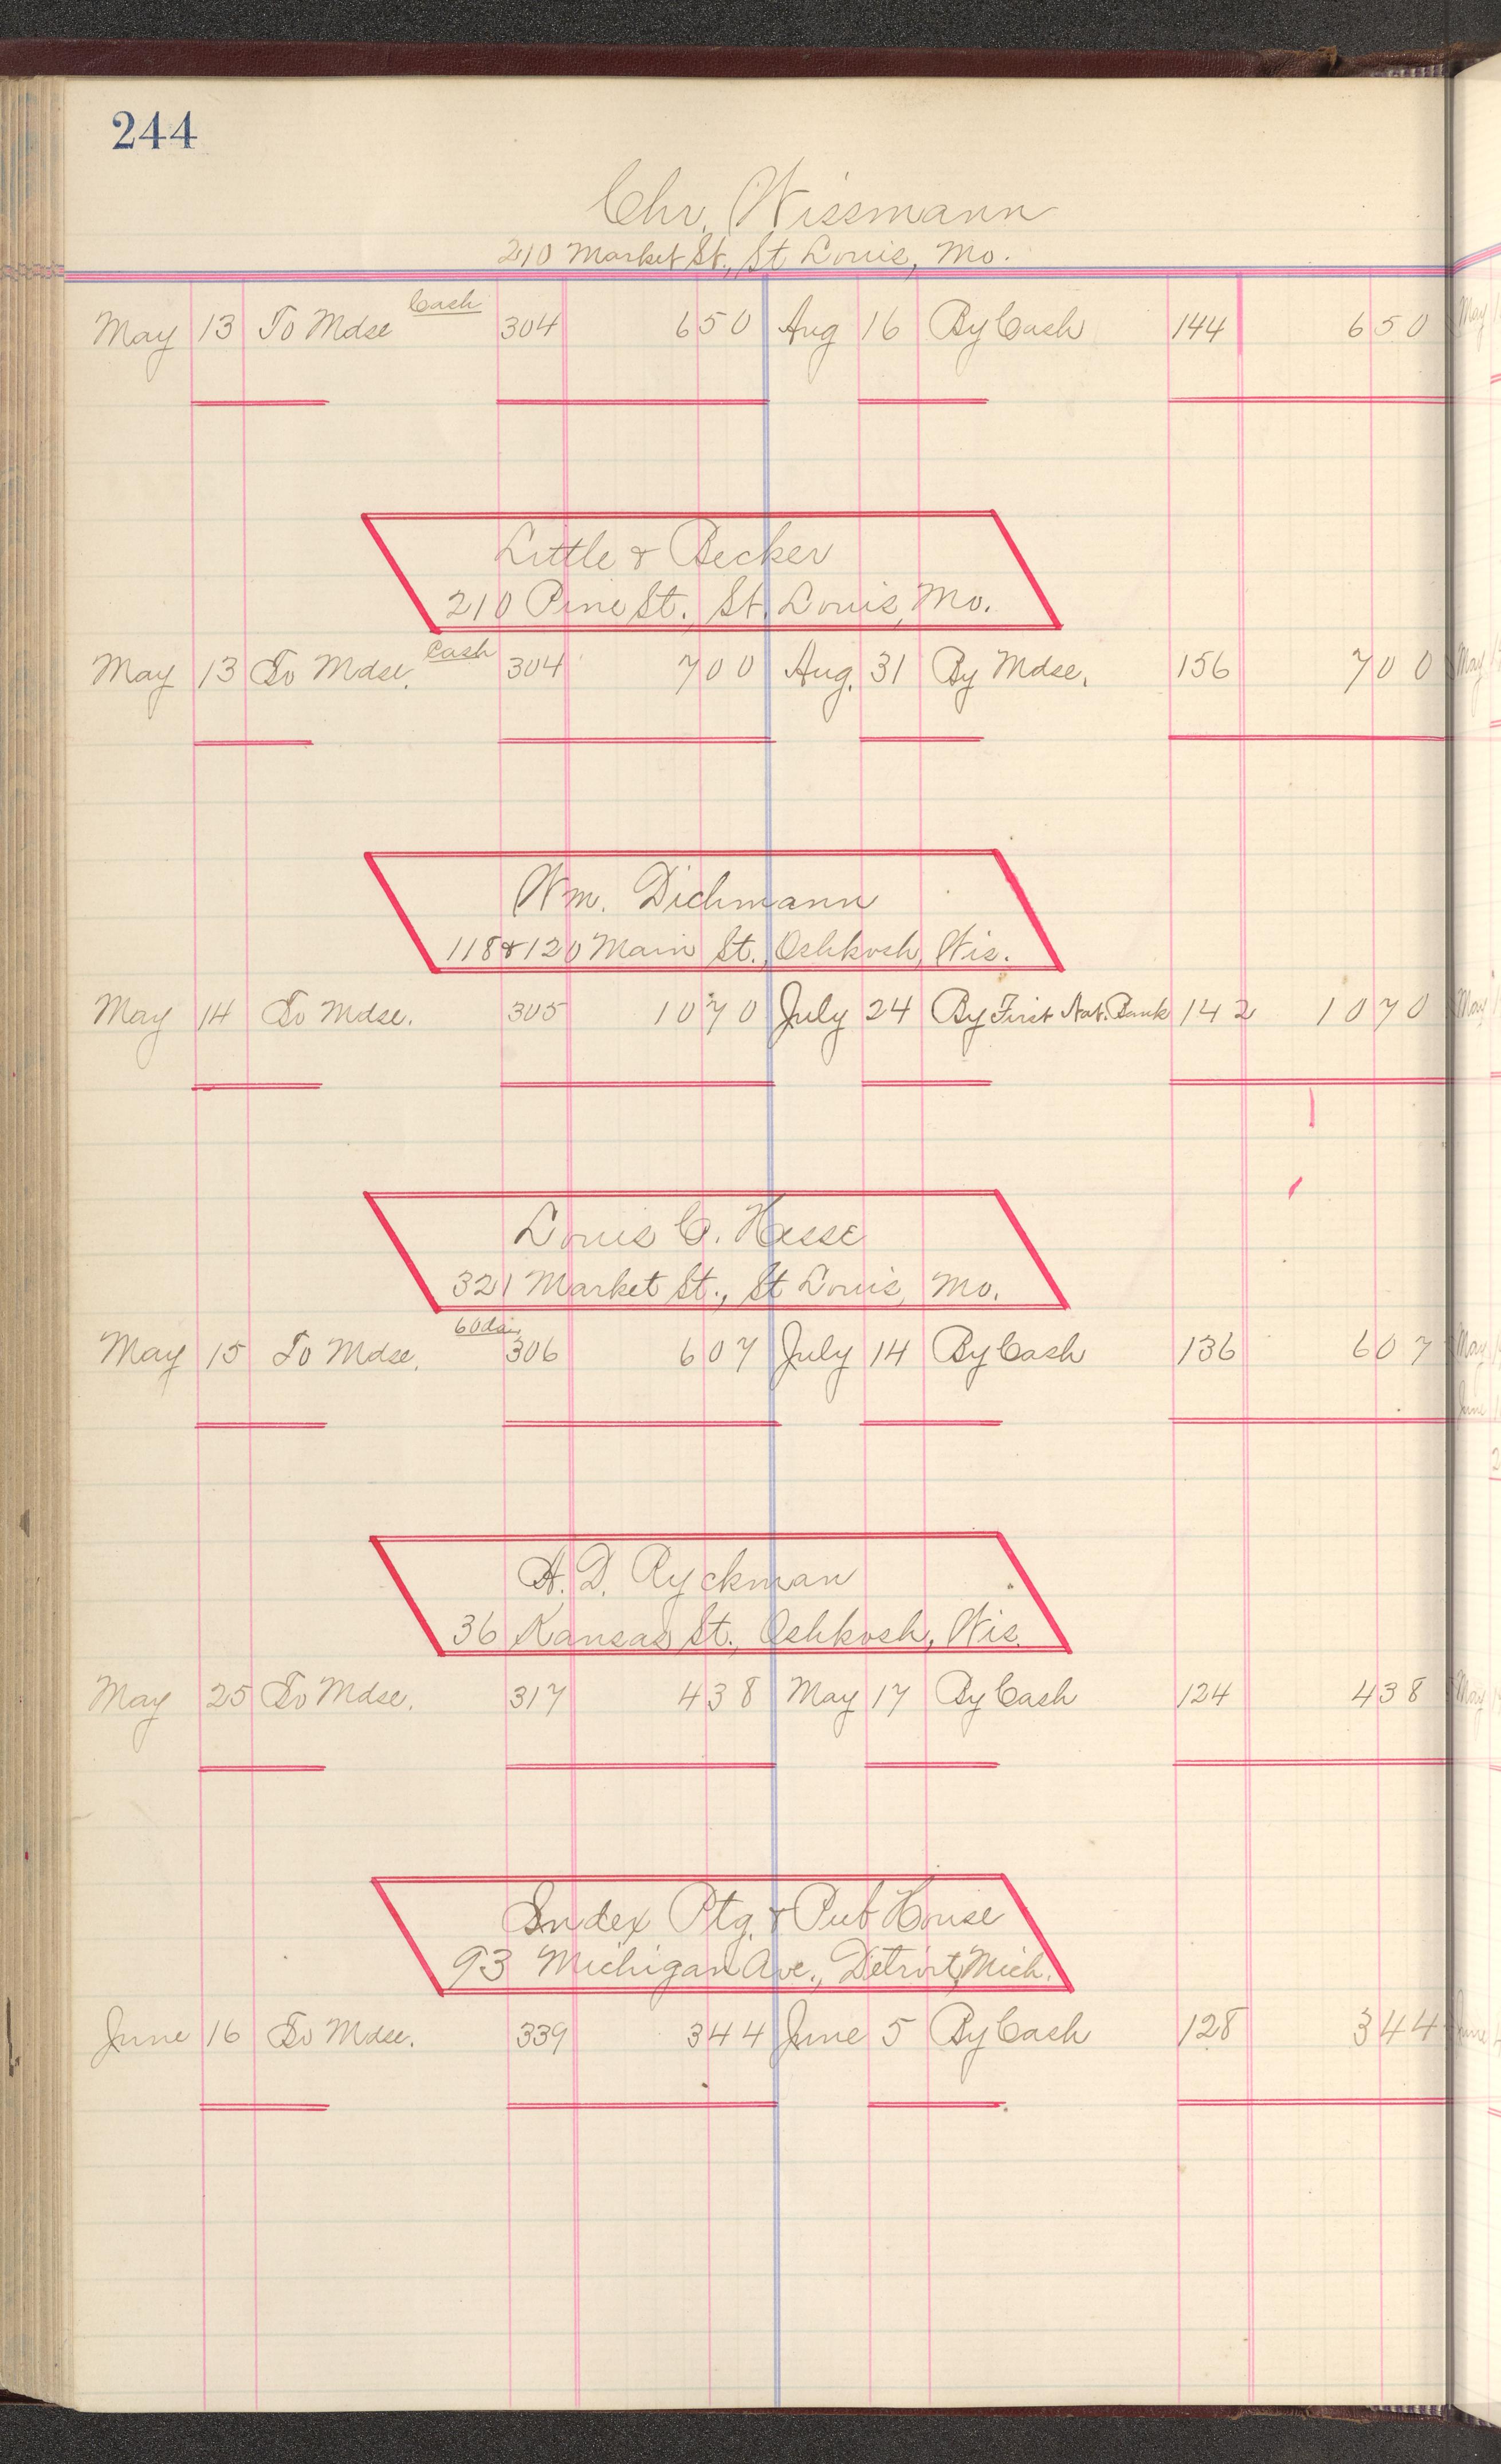 244
Chr. Wissmann
210 Market St., St Louis, Mo.
Cash
May 13 To Mdse 304 6 50 Aug 16 By Cash 144 6 50
Little & Becker
210 Pine St. St. Louis, Mo.
Cash
May 13 To Mdse. 304 7 00 Aug. 31 By Mdse. 156 7 00
Wm. Dichmann
118 & 120 Main St., Oshkosh, Wis.
May 14 To Mdse. 305 10 70 July 24 By First Nat. Bank 142 10 70
Louis C. Hesse
321 Market St., St Louis, Mo.
60 da
May 15 To Mdse. 306 6 07 July 14 By Cash 136 6 07
A. D. Ryckman
36 Kansas St., Oshkosh, Wis.
May 25 To Mdse. 317 4 38 May 17 By Cash 124 4 38
Index Ptg. & Pub House
93 Michigan Ave., Detroit, Mich.
June 16 To Mdse. 339 3 44 June 5 By Cash 128 3 44